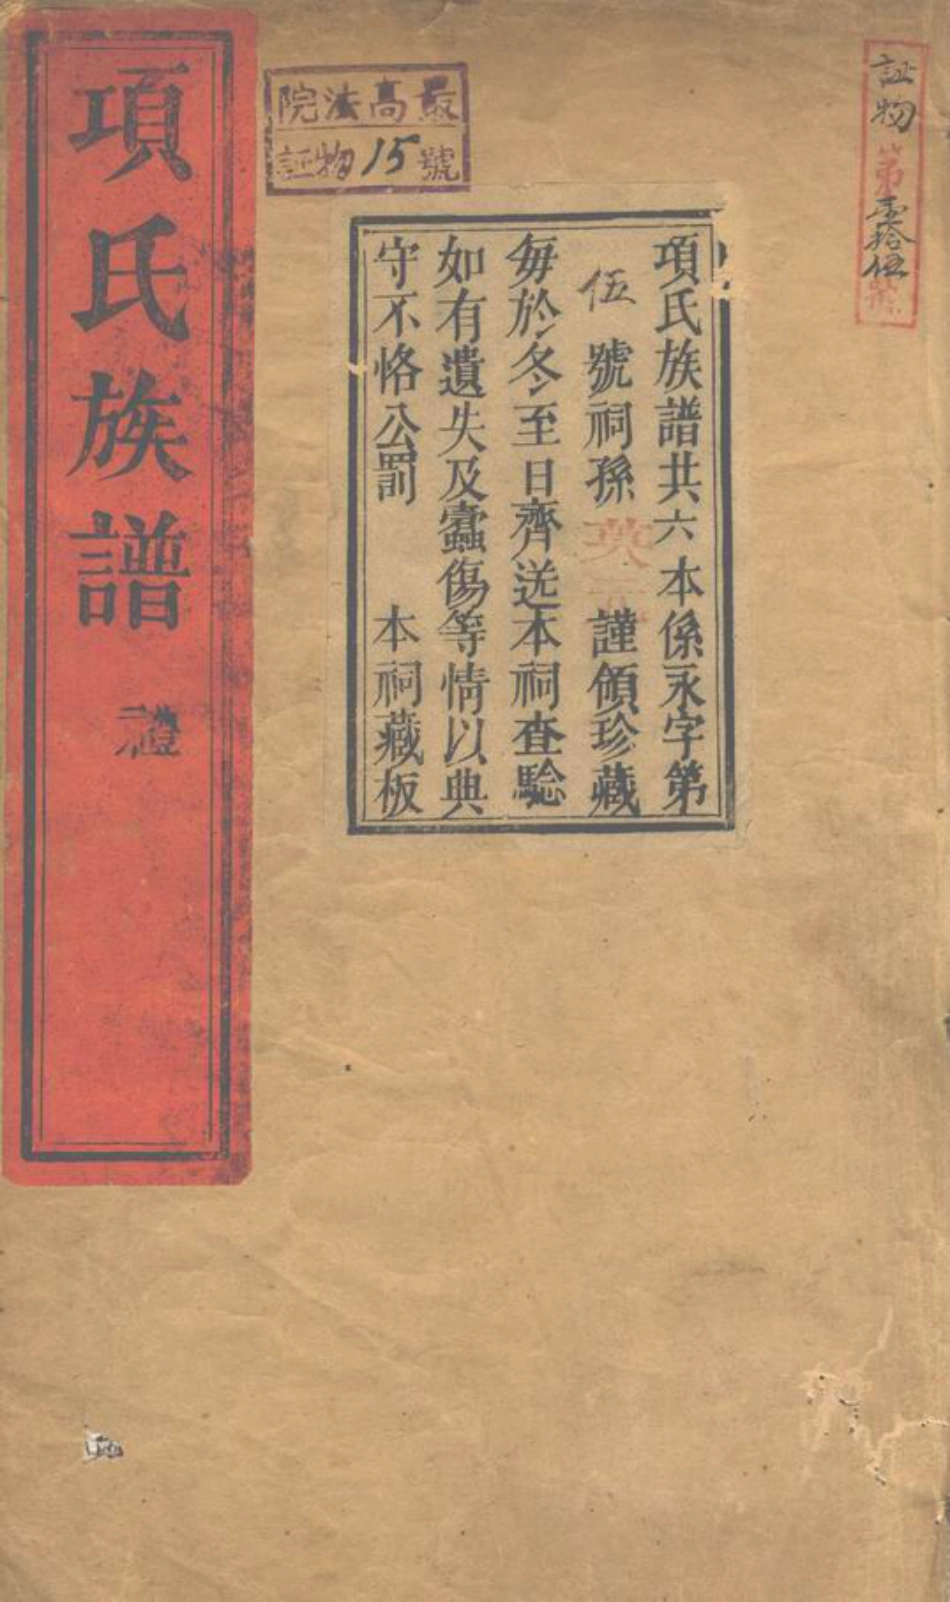 証物第壹拾伍號
最高法院
証物15號
項氏族譜共六本係永字第
伍號祠孫英謹領珍藏
每於冬至日齊送本祠查驗
如有遺失及蠹傷等情以典
守不恪公罰 本祠藏板
項氏族譜 禮